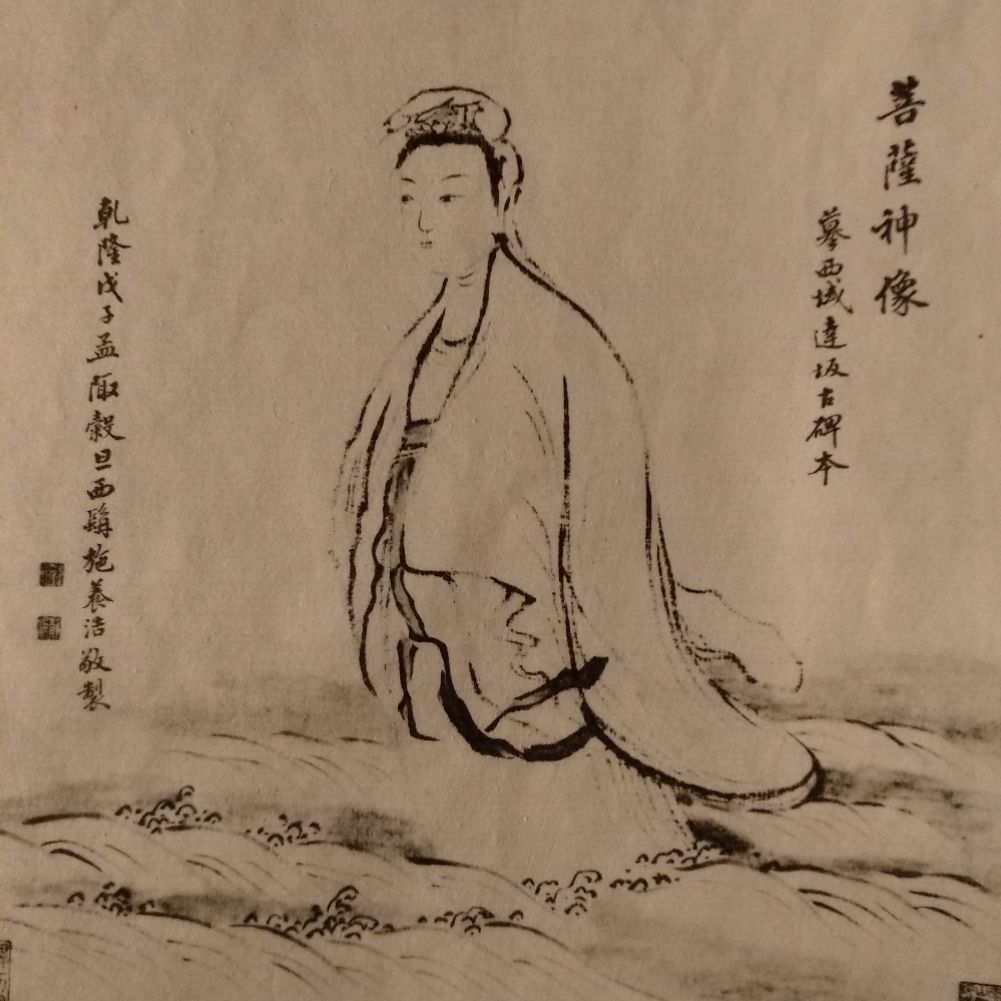 菩薩神像
摹西域達坂古碑本
乾隆戊子孟陬穀旦西疇施養浩敬製